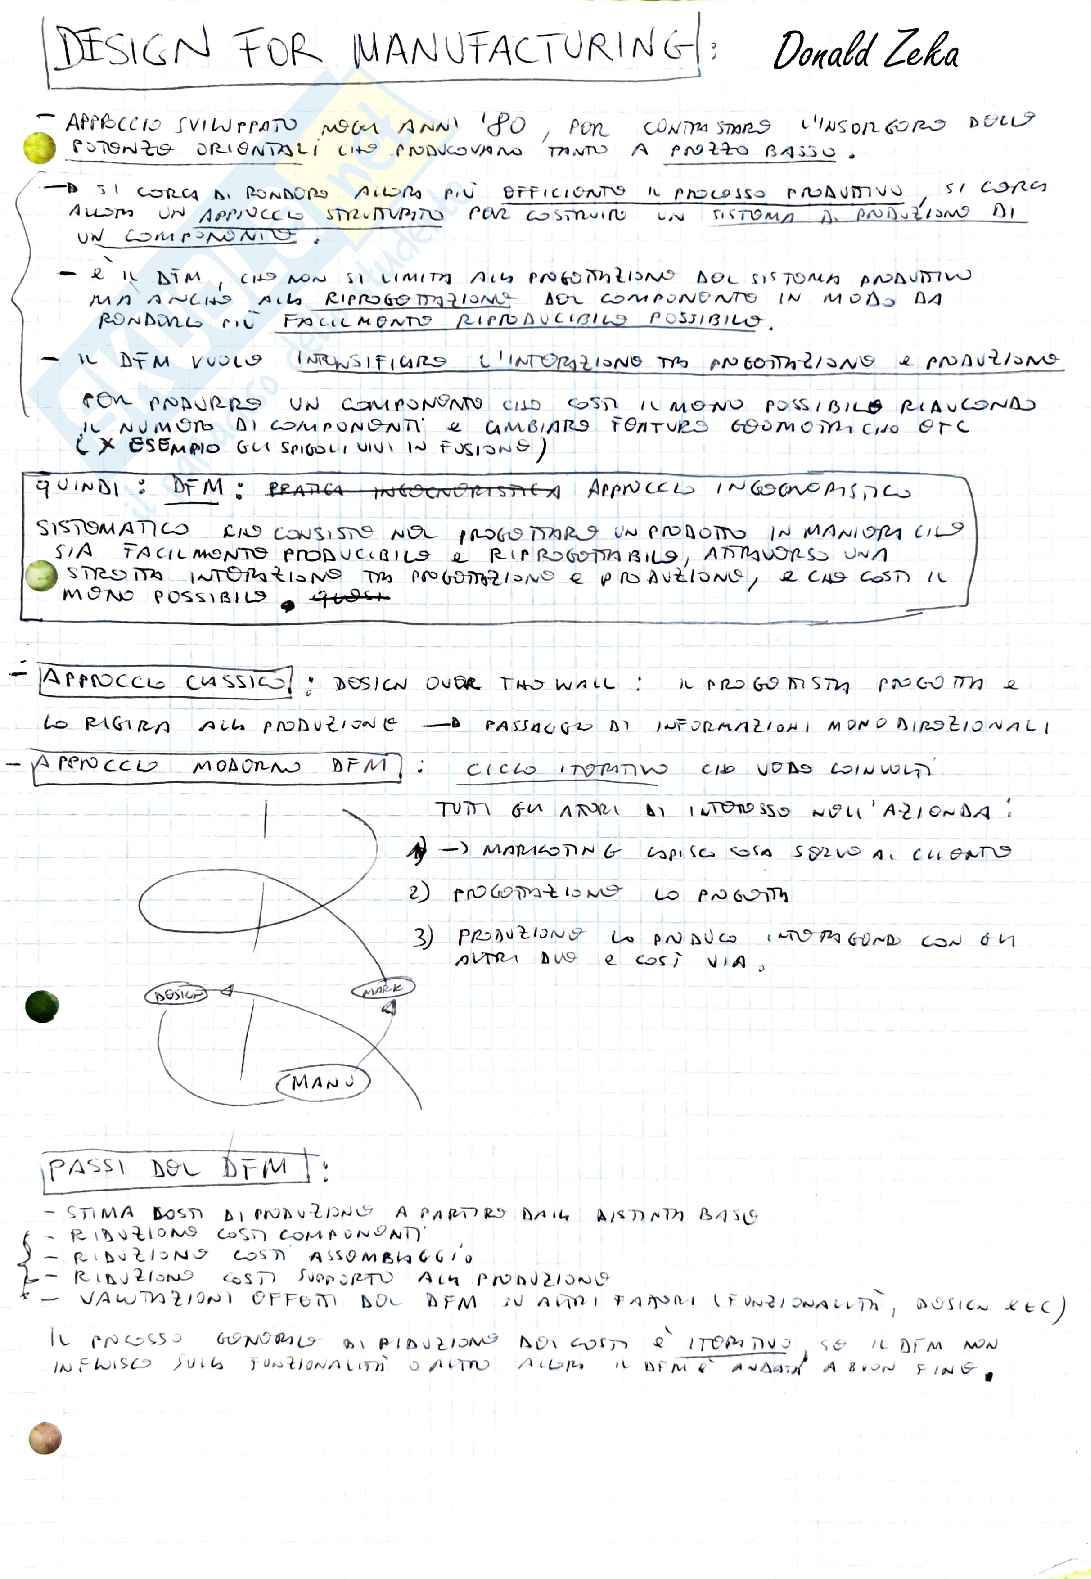 DESIGN FOR MANUFACTURING: Donald Zeka
- APPROCCIO SVILUPPATO NEGLI ANNI '80, PER CONTRASTARE L'INSORGERE DELLE
POTENZE ORIENTALI CHE PRODUCEVANO TANTO A PREZZO BASSO.
→ SI CERCA DI RENDERE ALLORA PIÙ EFFICIENTE IL PROCESSO PRODUTTIVO, SI CERCA
ALLORA UN APPROCCIO STRUTTURATO PER COSTRUIRE UN SISTEMA DI PRODUZIONE DI
UN COMPONENTE.
- È IL DFM, CHE NON SI LIMITA ALLA PROGETTAZIONE DEL SISTEMA PRODUTTIVO
MA ANCHE ALLA RIPROGETTAZIONE DEL COMPONENTE IN MODO DA
RENDERLO PIÙ FACILMENTE RIPRODUCIBILE POSSIBILE.
- IL DFM VUOLE INTENSIFICARE L'INTERAZIONE TRA PROGETTAZIONE E PRODUZIONE
PER PRODURRE UN COMPONENTE CHE COSTI IL MENO POSSIBILE RIDUCENDO
IL NUMERO DI COMPONENTI E CAMBIARE FEATURE GEOMETRICHE ETC
(X ESEMPIO GLI SPIGOLI VIVI IN FUSIONE)
QUINDI: DFM: PRATICA INGEGNERISTICA APPROCCIO INGEGNERISTICO
SISTEMATICO CHE CONSISTE NEL PROGETTARE UN PRODOTTO IN MANIERA CHE
SIA FACILMENTE PRODUCIBILE E RIPROGETTABILE, ATTRAVERSO UNA
STRETTA INTERAZIONE TRA PROGETTAZIONE E PRODUZIONE, E CHE COSTI IL
MENO POSSIBILE.
- APPROCCIO CLASSICO: DESIGN OVER THE WALL: IL PROGETTISTA PROGETTA E
LO RIGIRA ALLA PRODUZIONE → PASSAGGIO DI INFORMAZIONI MONODIREZIONALI
- APPROCCIO MODERNO DFM: CICLO ITERATIVO CHE VEDE COINVOLTI
TUTTI GLI ATTORI DI INTERESSE NELL'AZIENDA:
1) → MARKETING CAPISCE COSA SERVE AL CLIENTE
2) PROGETTAZIONE LO PROGETTA
3) PRODUZIONE LO PRODUCE INTERAGENDO CON GLI
ALTRI DUE E COSÌ VIA.
DESIGN MARK
MANU
PASSI DEL DFM:
- STIMA COSTI DI PRODUZIONE A PARTIRE DALLA DISTINTA BASE
- RIDUZIONE COSTI COMPONENTI
- RIDUZIONE COSTI ASSEMBLAGGIO
- RIDUZIONE COSTI SUPPORTO ALLA PRODUZIONE
- VALUTAZIONI EFFETTI DEL DFM SU ALTRI FATTORI (FUNZIONALITÀ, DESIGN ETC)
IL PROCESSO GENERALE DI RIDUZIONE DEI COSTI È ITERATIVO, SE IL DFM NON
INFLUISCE SULLA FUNZIONALITÀ O ALTRO ALLORA IL DFM È ANDATA A BUON FINE.